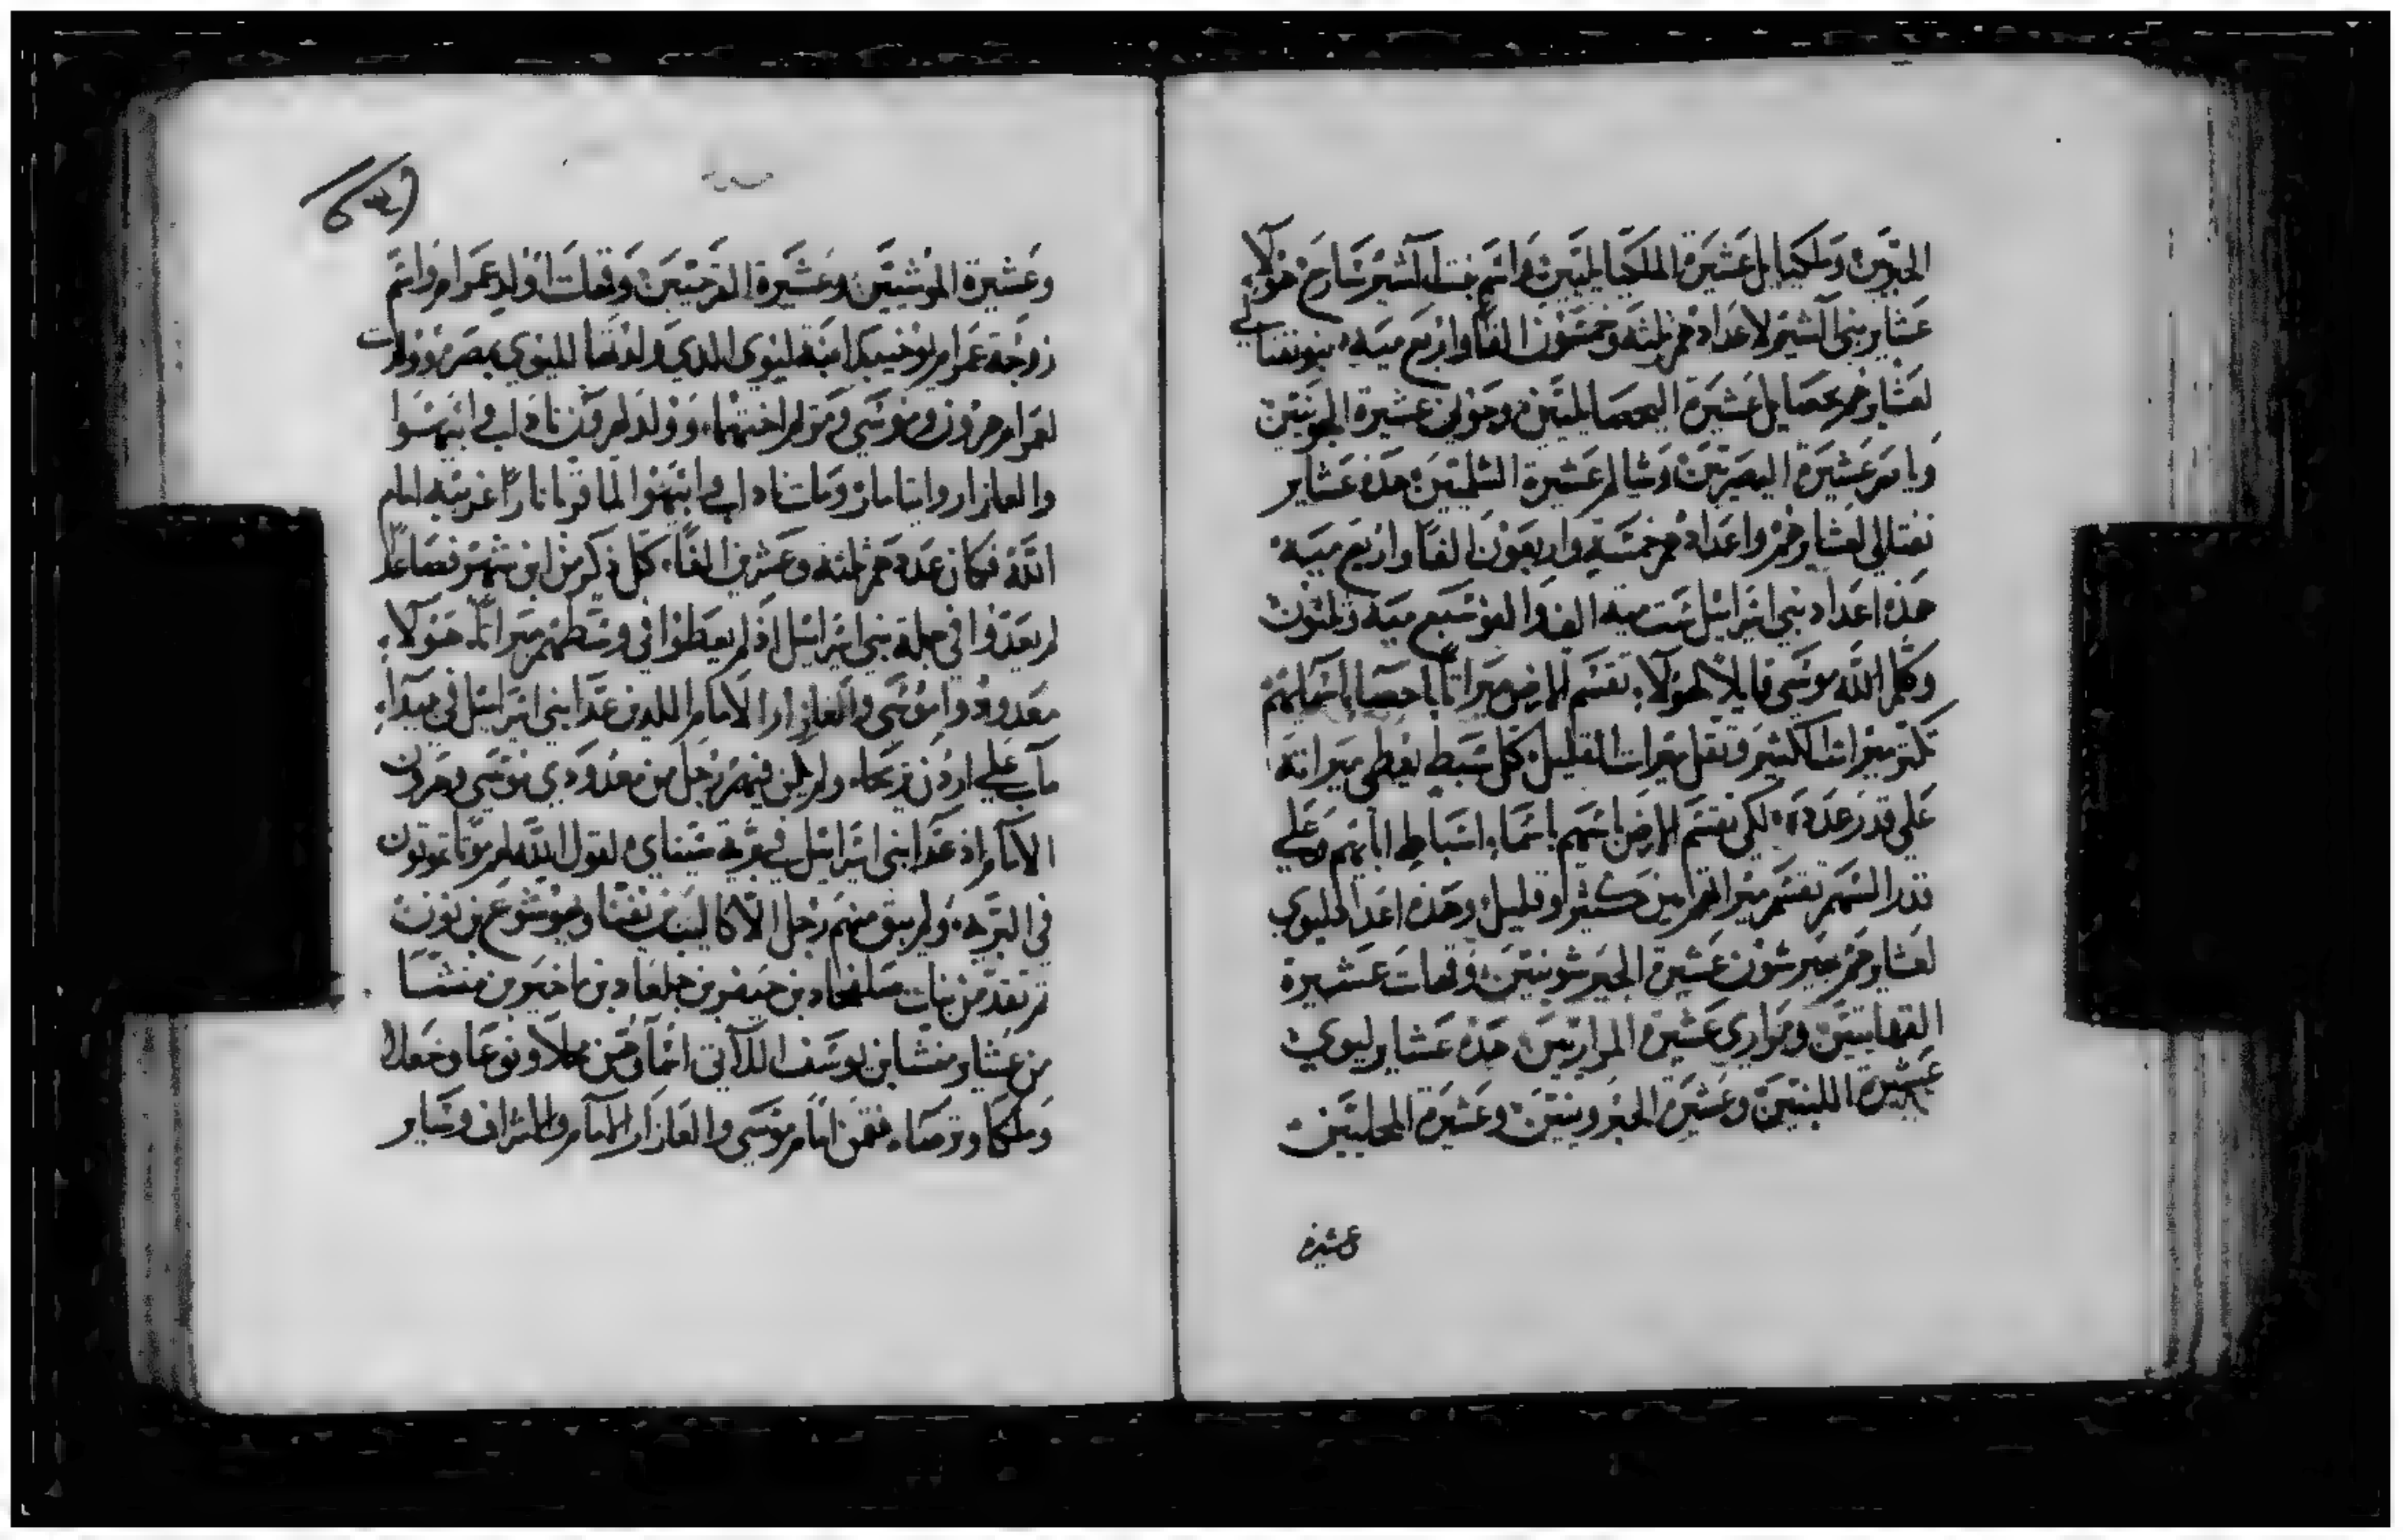 الحبريين وملكيايل عشيرة الملكيايليين واسم بنت آشير سارح هؤلاء
عشاير بني آشير لاعدادهم ثلثه وخمسون الفًا واربع ميه بنو نفتالي
لعشايرهم يحصايل عشيرة اليحصايليين وجوني عشيرة الجونيين
ويا صر عشيرة اليصريين وشالم عشيرة الشلميين هذه عشاير
نفتالي لعشايرهم واعدادهم خمسة واربعون الفًا واربع ميه
هذه اعداد بني اسرايل ست ميه الف والف وسبع ميه وثلثون
وكلم الله موسى قايلاً لهولاء تقسم الارض ميراثًا باحصاء اسمايهم
تكثر ميراث الكثير وتقل ميراث القليل كل سبط يعطى ميراثه
على قدر عدده لكي تقسم الارض باسهم باسماء اسباط ابايهم وعلى
قدر السهم تقسم ميراثهم من كثير وقليل وهذه اعداد ليوي
لعشايرهم جيرشون عشيرة الجيرشونيين وقهات عشيرة
القهاتيين ومراري عشيرة المراريين هذه عشاير ليوي
عشيرة اللبنيين وعشيرة الحبرونيين وعشيرة المحليين
وعشيرة
وعشيرة الموشيين وعشيرة القرحيين وقهات اولد عمرام واسم
زوجة عمرام يوخيبد ابنة ليوي الذي ولدتها لليوي بمصر وولدت
لعمرام هرون وموسى ومريم اختهما وولد لهرون ناداب وابيهوا
والعازار وايتامار ومات ناداب وابيهوا لما قربا نارًا غريبه امام
الله فكان عددهم ثلثه وعشرين الفًا كل ذكر من ابن شهر فصاعدًا
لم يعدوا في جملة بني اسرايل اذ لم يعطوا في وسطهم ميراثًا هولاء
معدودوا موسى والعازار الامام اللذين عدا بني اسرايل في بيداء
مآب على اردن يريحا ولم يكن فيهم رجل من معدودي موسى وهرون
الامام اذ عدا بني اسرايل في برية سيناي لقول الله لهم موتا تموتون
في البريه ولم يبق منهم رجل الا كاليب بن يفنا ويوشوع بن نون
ثم تقدمن بنات صلفحاد بن حيفر بن جلعاد بن ماخير بن منشا
من عشاير منشا بن يوسف اللاتي اسماوهن محلا ونوعا وحعلا
وملكا وترصا فقفن امام موسى والعازار الامام والاشراف وساير